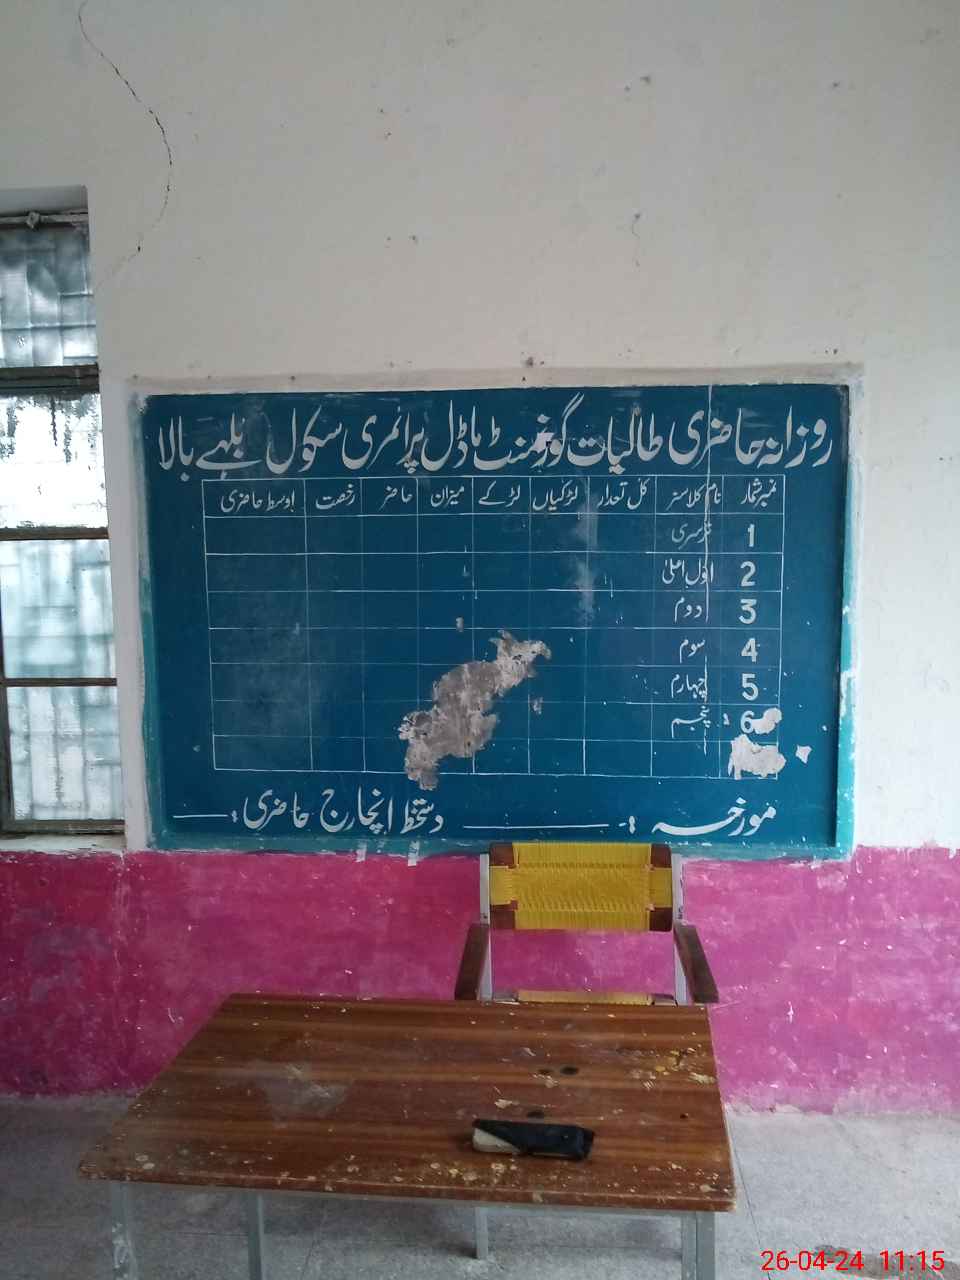 روزانہ حاضری طالبات گورنمنٹ ماڈل پرائمری سکول بلہے بالا
نمبر شمار نام کلاسز کل تعداد لڑکیاں لڑکے میزان حاضر رخصت اوسط حاضری
1 نرسری
2 اول اعلیٰ
3 دوم
4 سوم
5 چہارم
6 پنجم
مورخہ :- ________ دستخط انچارج حاضری :____
26-04-24 11:15